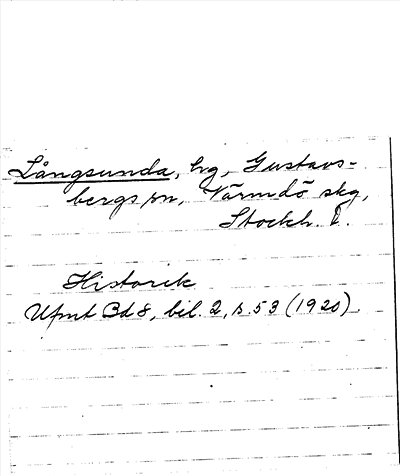 Långsunda, hg, Gustavs-
bergs sn, Värmdö skg,
Stockh. l.
Historik
Upmt Bd 8, bil. 2, s. 53 (1920)